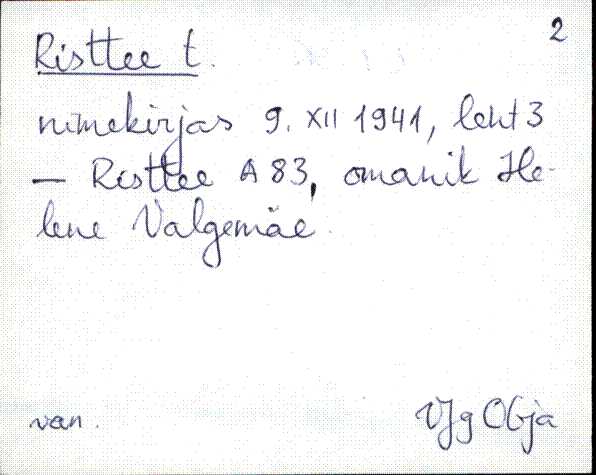 2
Risttee t.
nimekirjas 9. XII 1941, leht 3
— Risttee A 83, omanik He-
lene Valgemäe
van.
VJg Obja